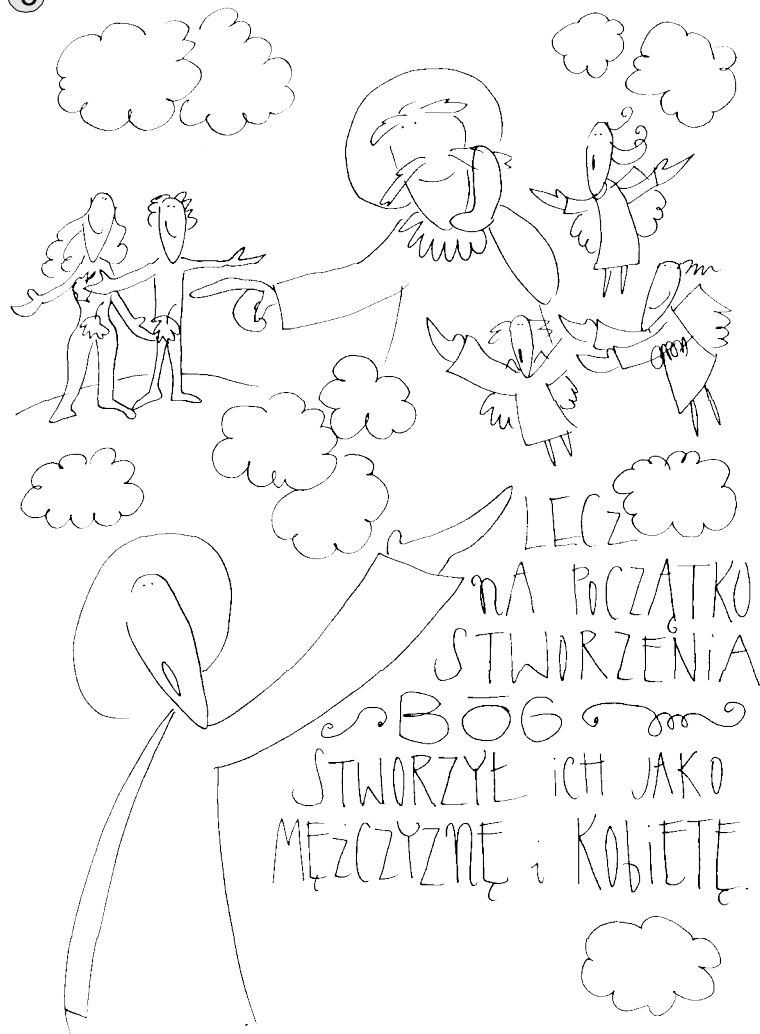 LECZ
NA POCZĄTKU
STWORZENIA
BÓG
STWORZYŁ iCH JAKO
MĘŻCZYZNĘ i KObiETĘ.